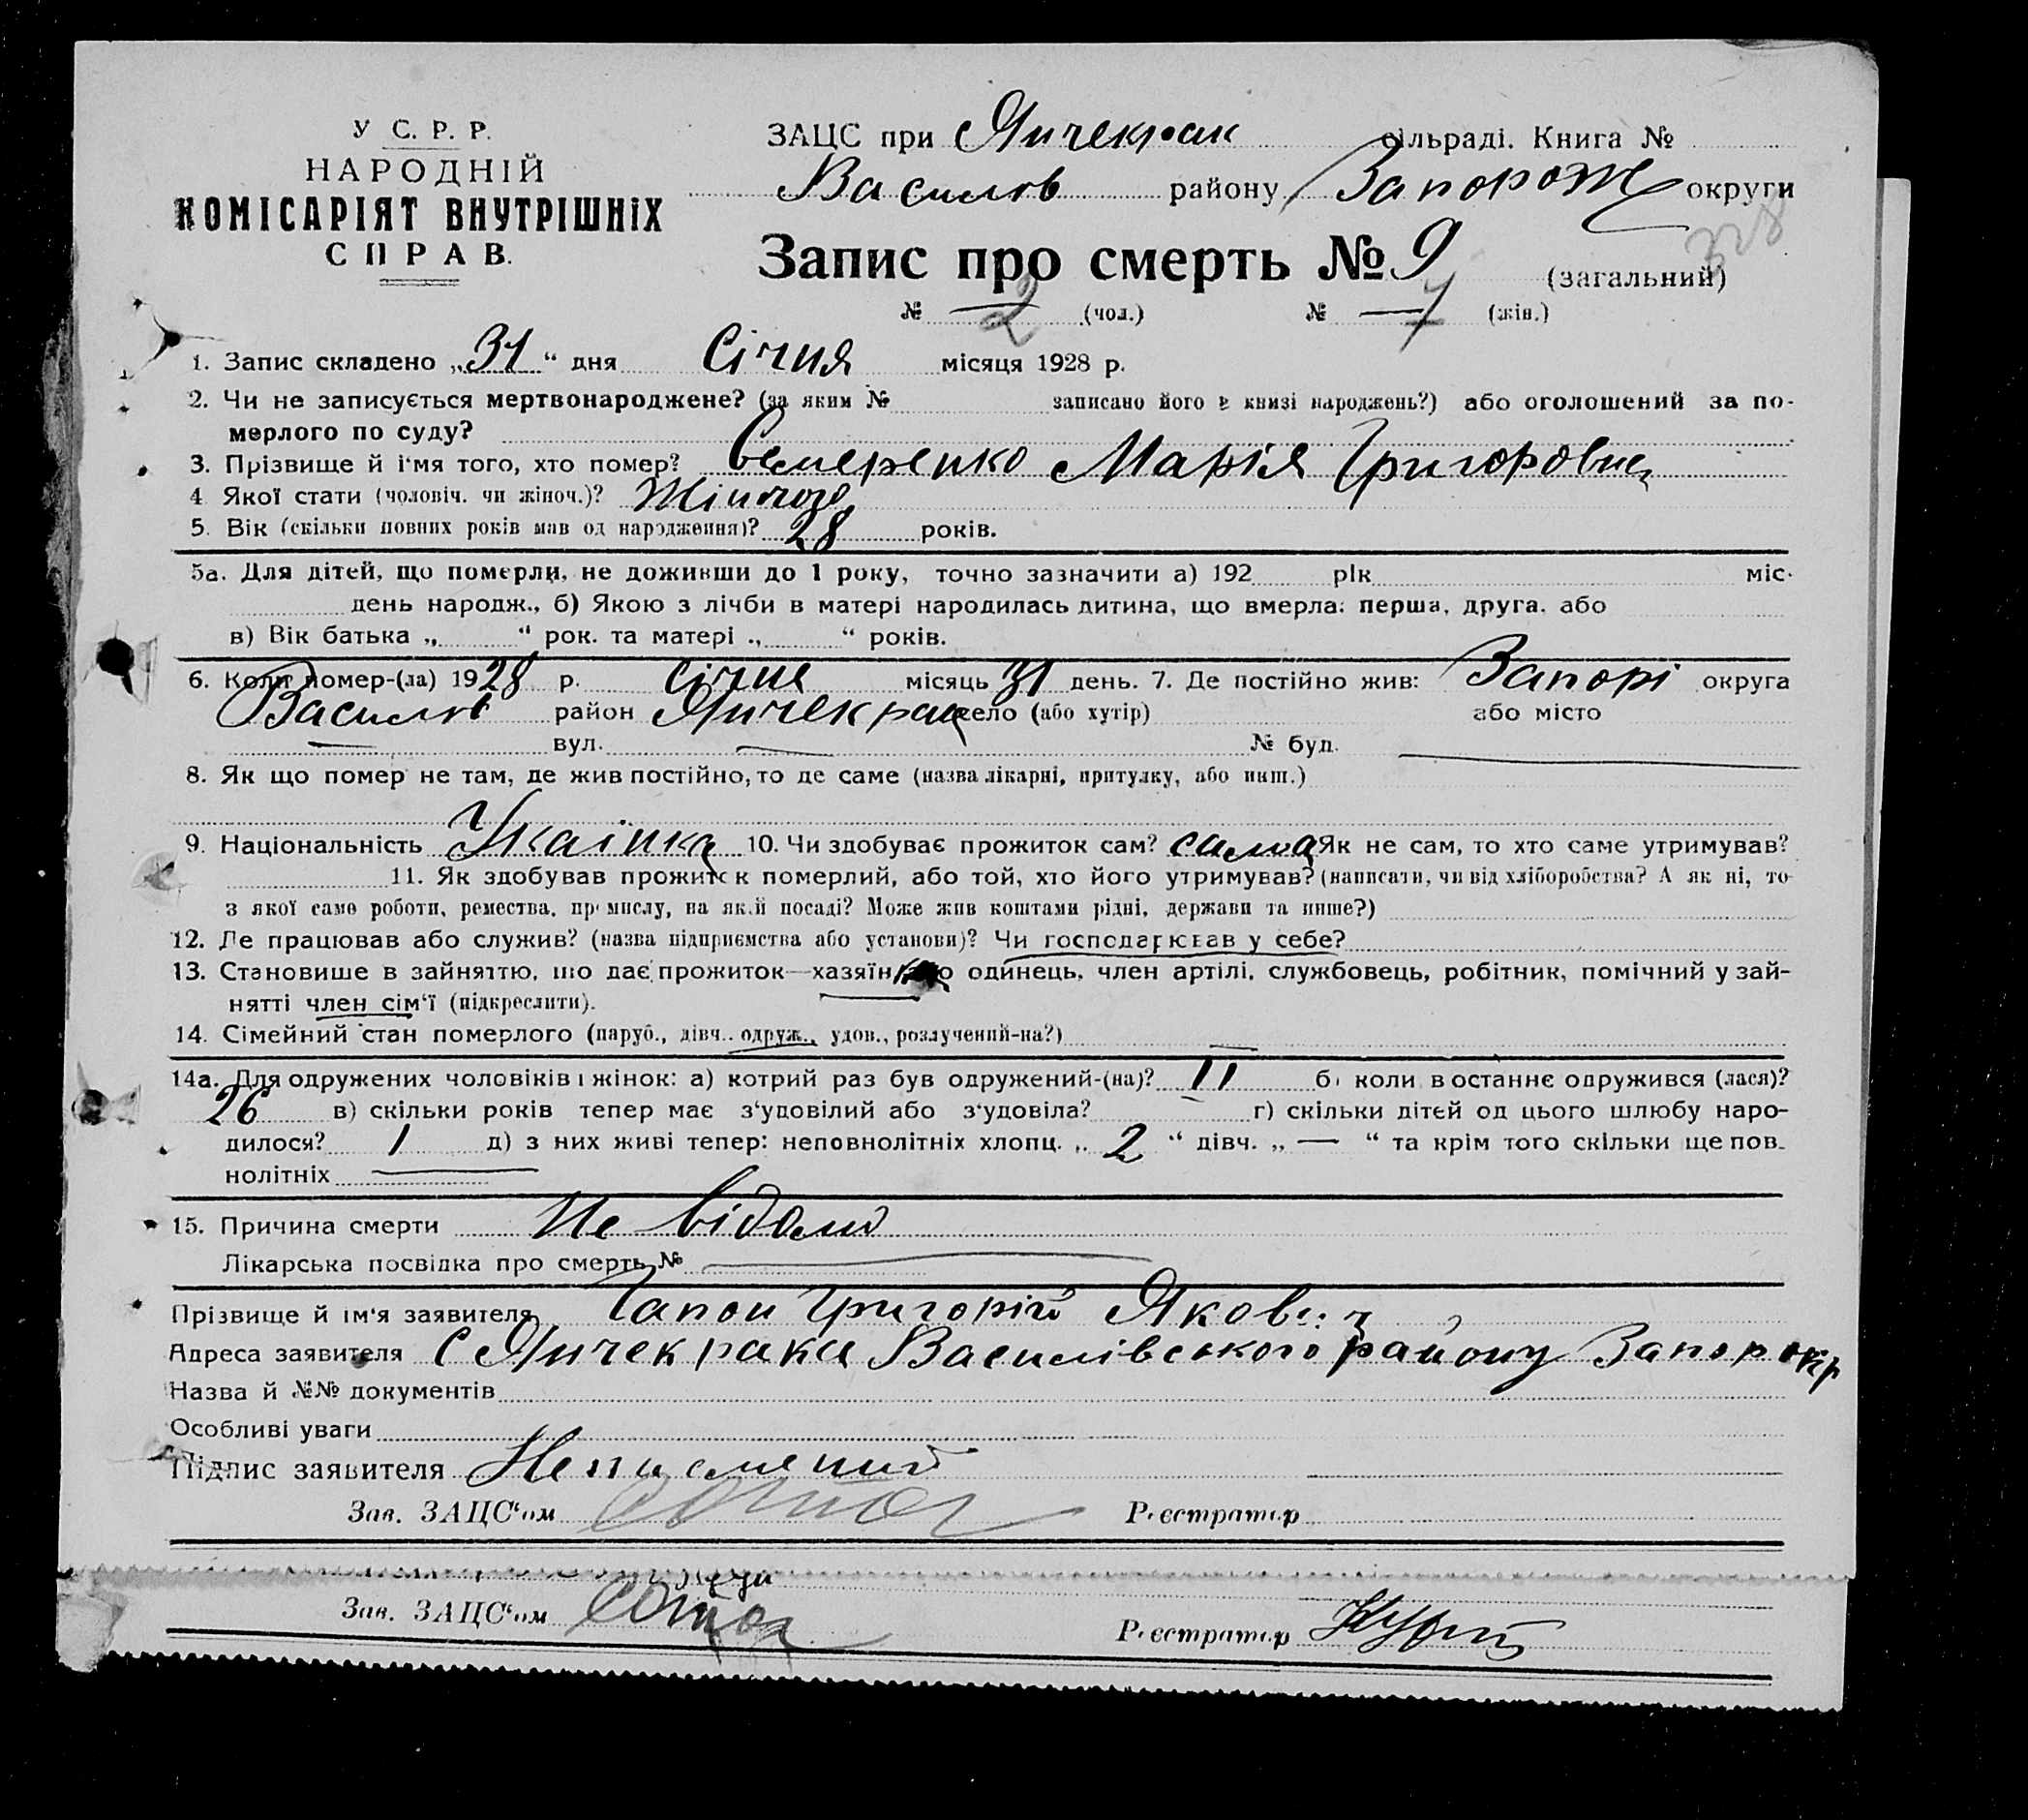 У С. Р. Р.
НАРОДНІЙ
КОМІСАРІЯТ ВНУТРІШНІХ
СПРАВ.
ЗАЦС при Янчекрак сільраді. Книга №
Василів району Запорож округи
328
Запис про смерть № 9 (загальний)
№ 2 (чол.) № 7 (жін.)
1. Запис складено „31“ дня Січня місяця 1928 р.
2. Чи не записується мертвонароджене? (за яким № записано його в книзі народжень?) або оголошений за по-
мерлого по суду?
3. Прізвище й і'мя того, хто помер? Семеренко Марія Григоровна
4 Якої стати (чоловіч. чи жіноч.)? Жіночої
5. Вік (скільки повних років мав од народження)? 28 років.
5а. Для дітей, що померли, не доживши до 1 року, точно зазначити а) 192 рік міс.
день народж., б) Якою з лічби в матері народилась дитина, що вмерла: перша, друга. або
в) Вік батька „ “ рок. та матері „ “ років.
6. Коли помер-(ла) 1928 р. січня місяць 31 день. 7. Де постійно жив: Запорі округа
Василів район Янчекрак село (або хутір) або місто
— вул. — № буд. —
8. Як що помер не там, де жив постійно, то де саме (назва лікарні, притулку, або инш.)
9. Національність Украінка 10. Чи здобуває прожиток сам? сама Як не сам, то хто саме утримував?
11. Як здобував прожиток померлий, або той, хто його утримував? (написати, чи від хліборобства? А як ні, то
з якої саме роботи, ремества, промислу, на якій посаді? Може жив коштами рідні, держави та инше?)
12. Де працював або служив? (назва підприємства або установи)? Чи господарював у себе?
13. Становише в зайняттю, що дає прожиток—хазяїн одинець, член артілі, службовець, робітник, помічний у зай-
нятті член сім'ї (підкреслити).
14. Сімейний стан померлого (паруб., дівч.. одруж., удов., розлучений-на?)
14а. Для одружених чоловіків і жінок: а) котрий раз був одружений-(на)? II б) коли в останнє одружився (лася)?
26 в) скільки років тепер має з'удовілий або з'удовіла? г) скільки дітей од цього шлюбу наро-
дилося? 1 д) з них живі тепер: неповнолітніх хлопц. „ 2 “ дівч. „ — “ та крім того скільки ще пов-
нолітніх —
15. Причина смерти Не відомо
Лікарська посвідка про смерть № —
Прізвище й ім'я заявителя Григорій Якович
Адреса заявителя с Янчекрака Василівського району Запорокр
Назва й №№ документів
Особливі уваги
Підпис заявителя Неписмений
Зав. ЗАЦС'ом Реєстратор
Зав. ЗАЦС'ом Реєстратор